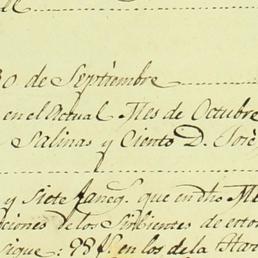 30 de Septiembre
en el Actual Mes de Octubre
Salinas y Ciento D. Josè
y siete faneg.s que en dho Me
ciones de los Sirbientes de
sigue: 98 f.s en los de la Har